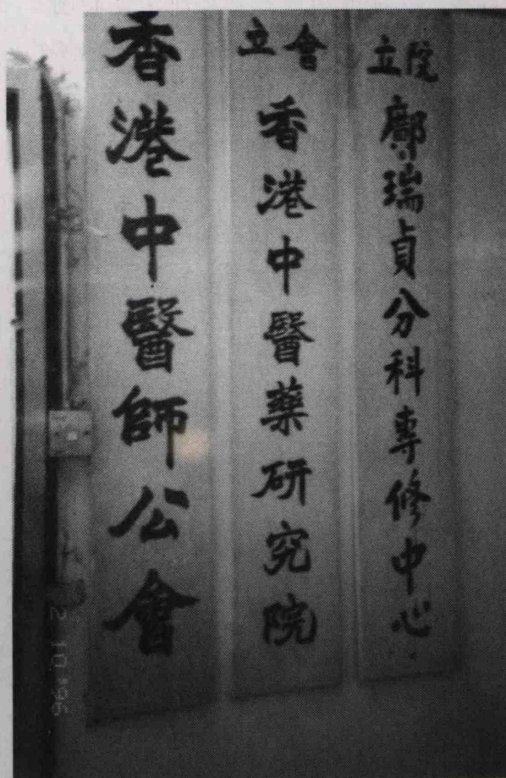 院立
鄺瑞貞分科專修中心
會立
香港中醫藥研究院
香港中醫師公會
2 10 '96